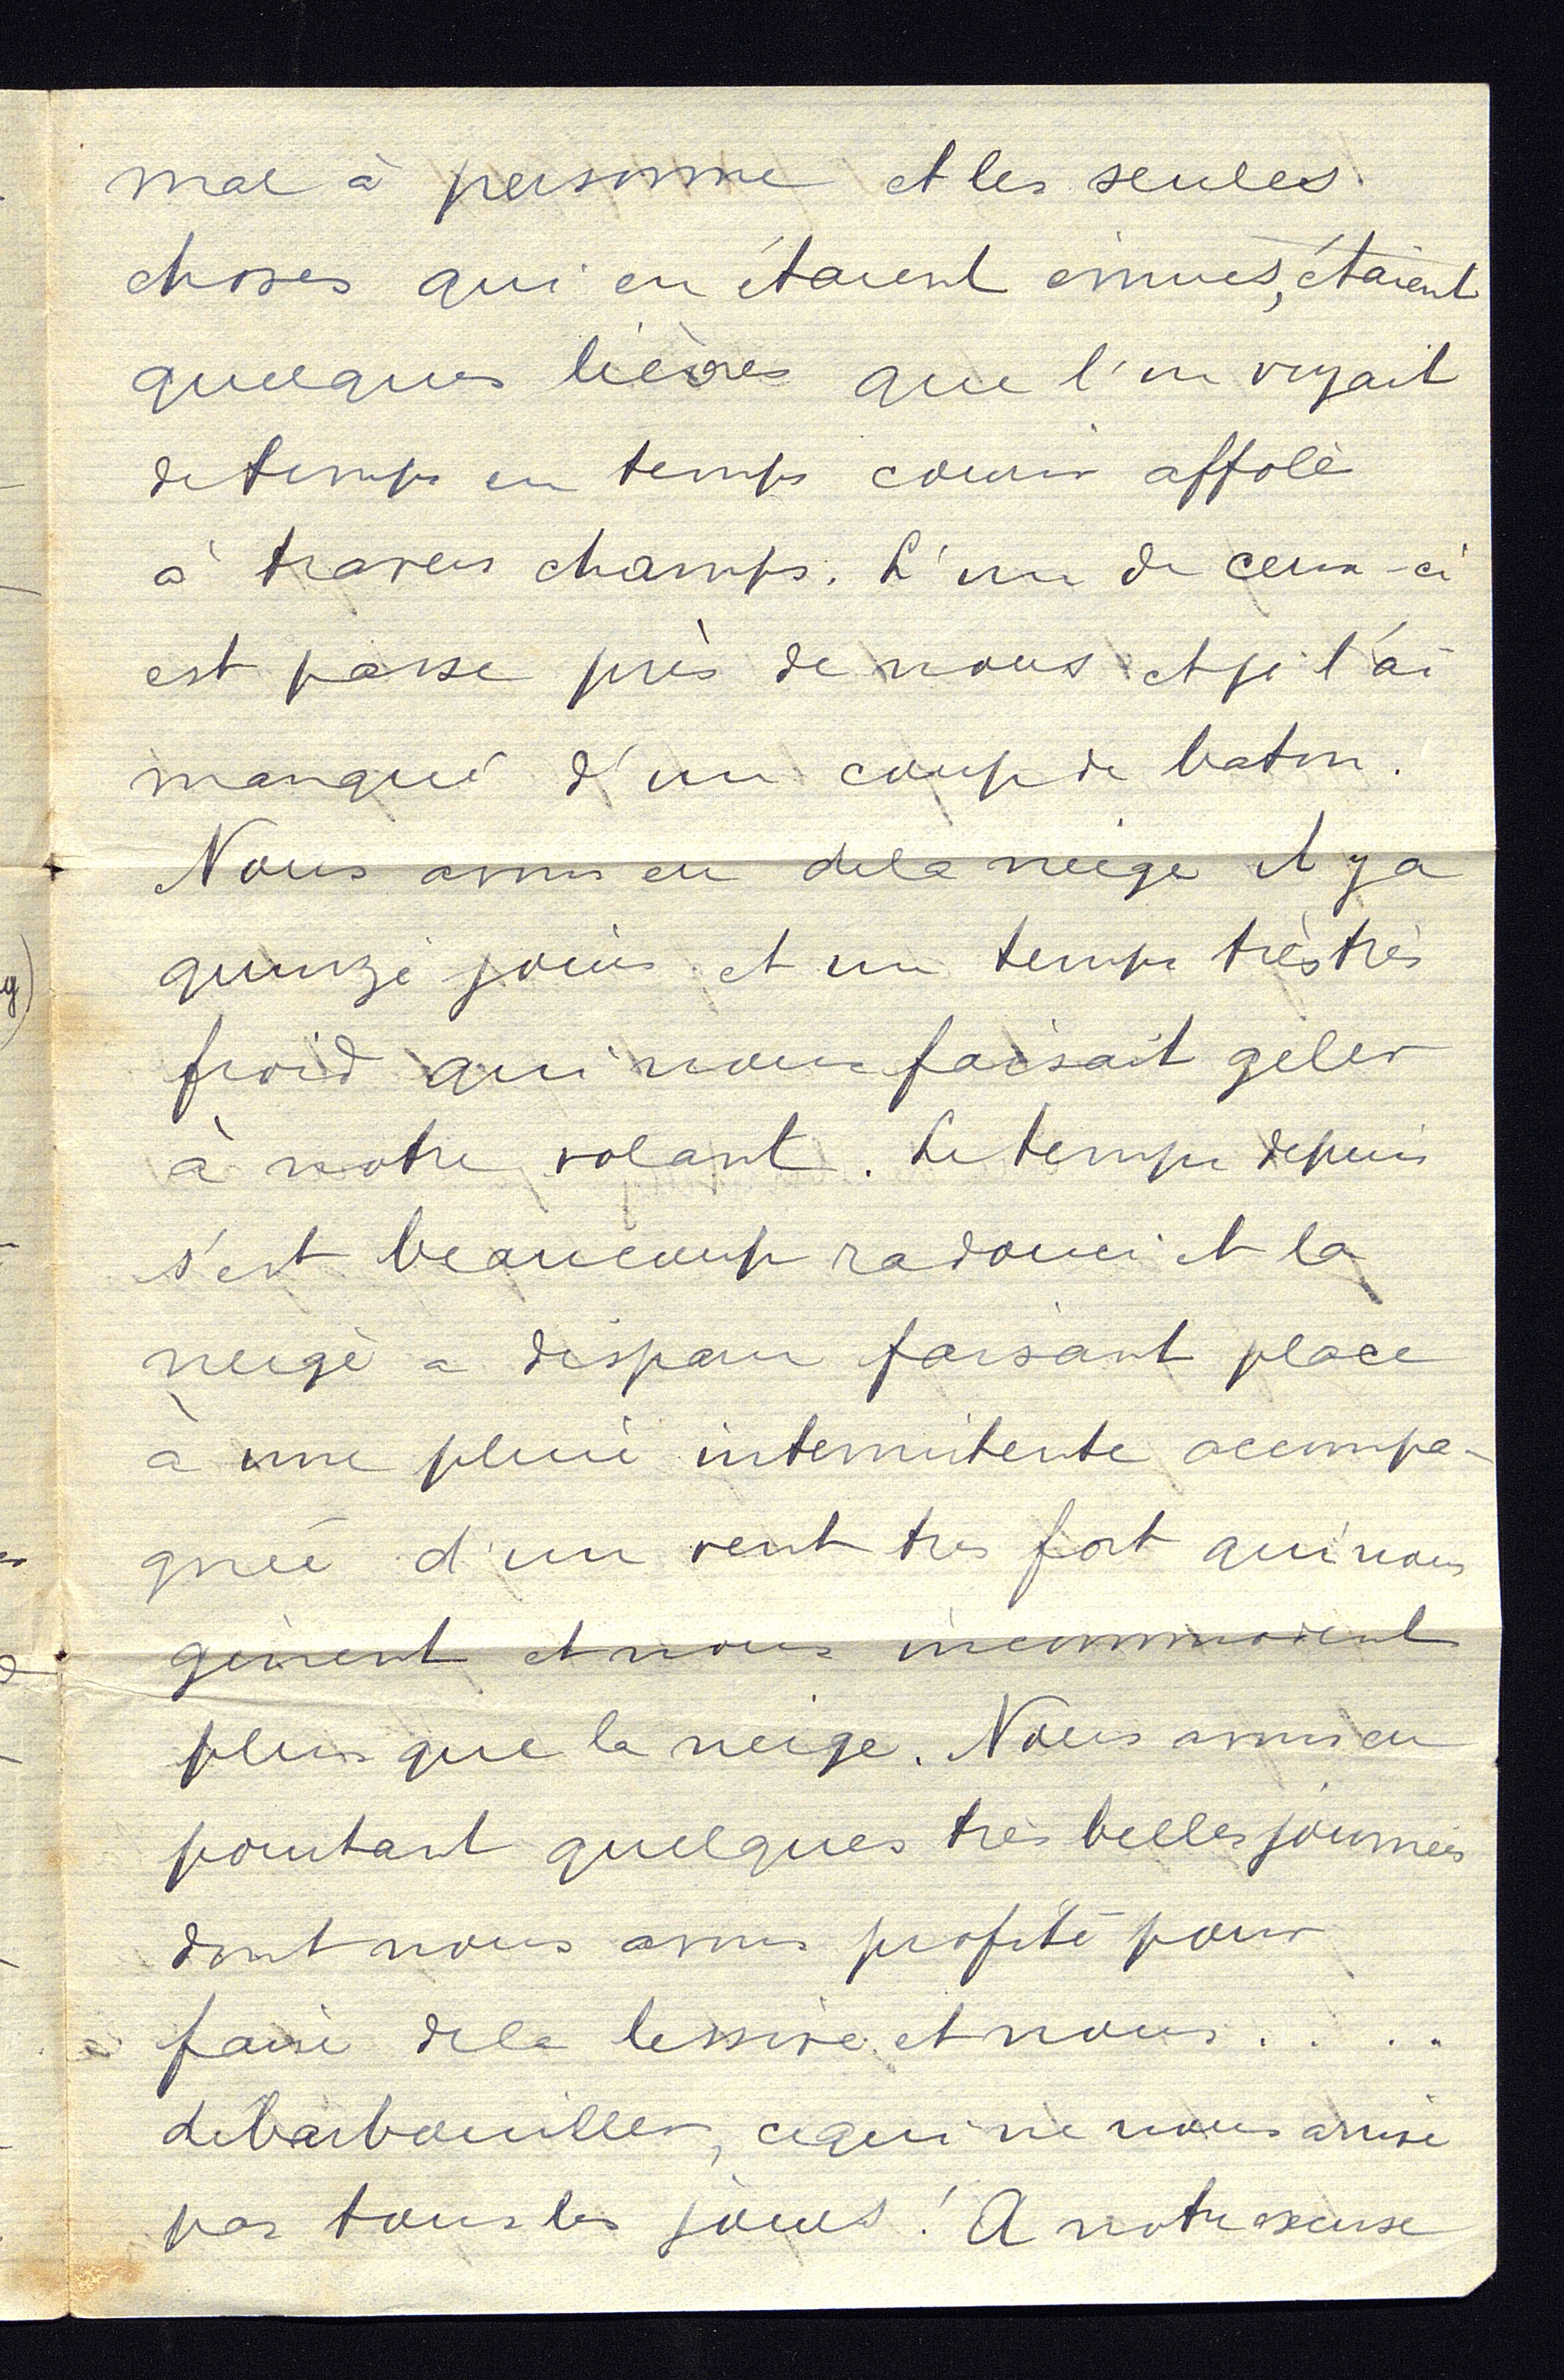 mal à personne et les seules
choses qui en étaient émues, étaient
quelques lièvres que l'on voyait
de temps en temps courir affolé
à travers champs. L'un de ceux-ci
est passé près de nous et je l'ai
manqué d'un coup de baton.
Nous avons eu de la neige il y a
quinze jours et un temps très très
froid qui nous faisait geler
à notre volant. Le temps depuis
s'est beaucoup radouci et la
neige a disparu faisant place
à une pluie intermitente accompa-
gnée d'un vent très fort qui nous
gènent et nous incommodent
plus que la neige. Nous avons eu
pourtant quelques très belles journées
dont nous avons profité pour
faire de la lessive et nous . . . .
debarbouiller, ce qui ne nous arrive
pas tous les jours ! A notre excuse